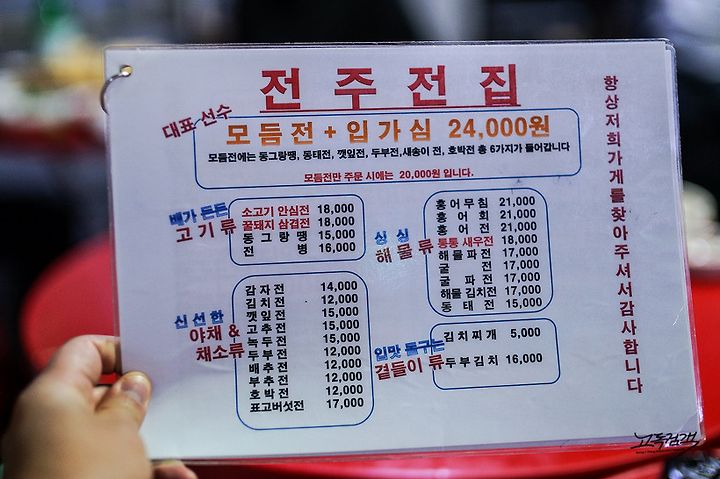 전주전집
대표 선수
모듬전 + 입가심 24,000원
모듬전에는 동그랑땡, 동태전, 깻잎전, 두부전,새송이 전, 호박전 총 6가지가 들어갑니다
모듬전만 주문 시에는 20,000원 입니다.
배가 든든
고기 류
소고기 안심전 18,000
꿀돼지 삼겹전 18,000
동그랑땡 15,000
전병 16,000
신선한
야채 &
채소류
감자전 14,000
김치전 12,000
깻잎전 15,000
고추전 15,000
녹두전 15,000
두부전 12,000
배추전 12,000
부추전 12,000
호박전 12,000
표고버섯전 17,000
싱싱
해물 류
홍어무침 21,000
홍어회 21,000
홍어전 21,000
통통 새우전 18,000
해물파전 17,000
굴전 17,000
굴파전 17,000
해물김치전 17,000
동태전 15,000
입맛 돋구는
곁들이 류
김치찌개 5,000
두부김치 16,000
항상저희가게를찾아주셔서감사합니다
고독검객